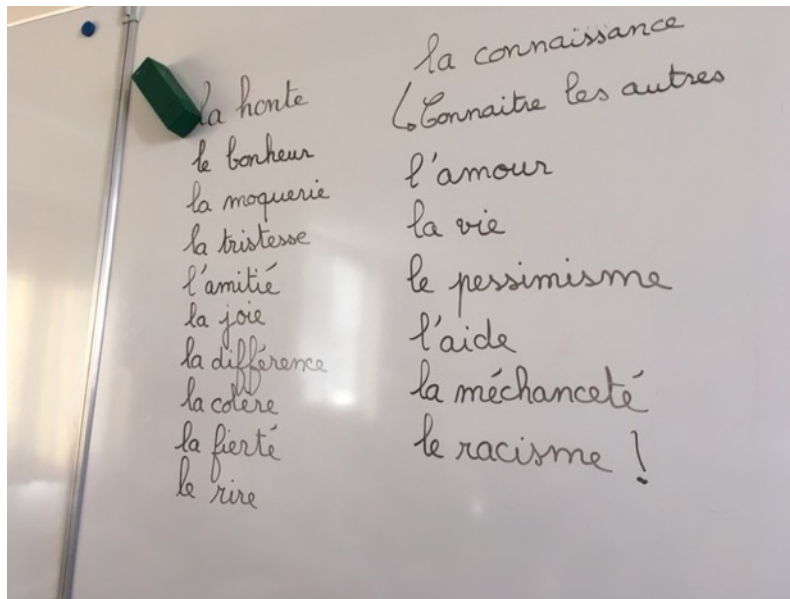 la honte
le bonheur
la moquerie
la tristesse
l'amitié
la joie
la différence
la colère
la fierté
le rire
la connaissance
↳ Connaitre les autres
l'amour
la vie
le pessimisme
l'aide
la méchanceté
le racisme !